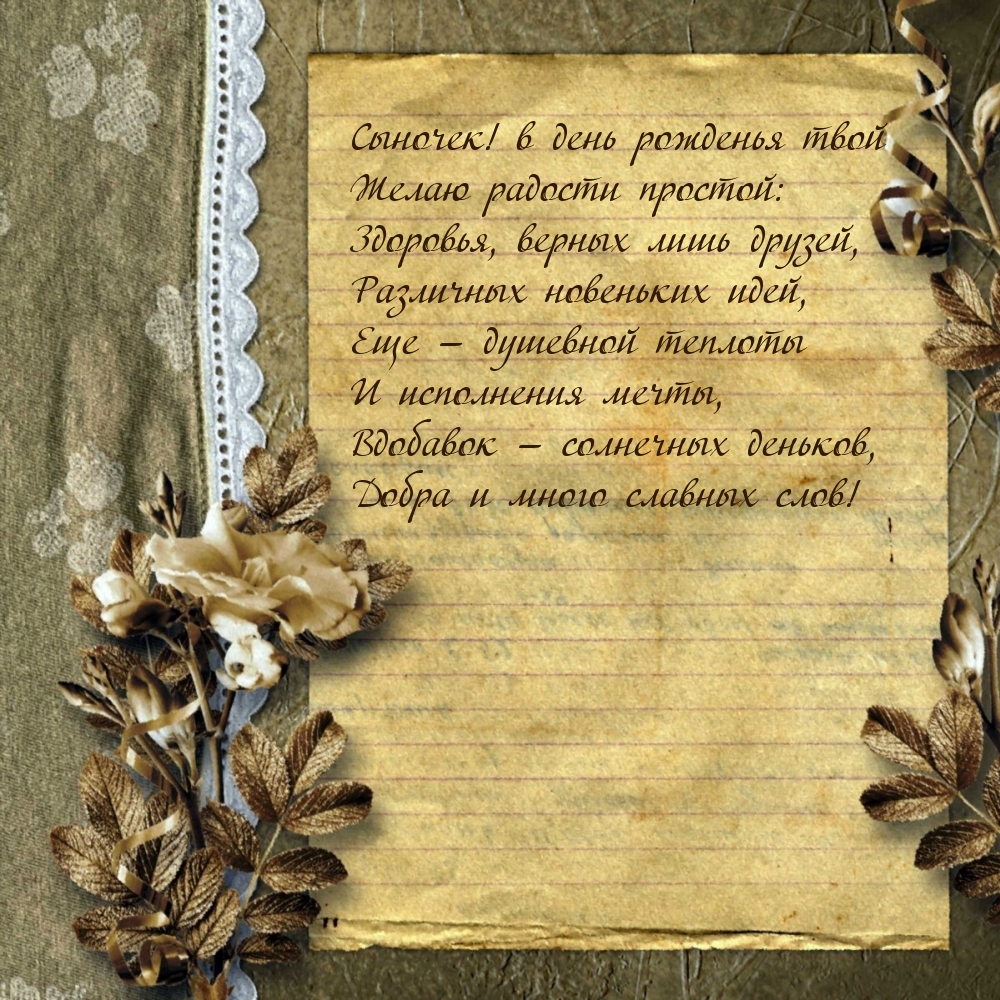 Сыночек! в день рожденья твой
Желаю радости простой:
Здоровья, верных лишь друзей,
Различных новеньких идей,
Еще – душевной теплоты
И исполнения мечты,
Вдобавок – солнечных деньков,
Добра и много славных слов!